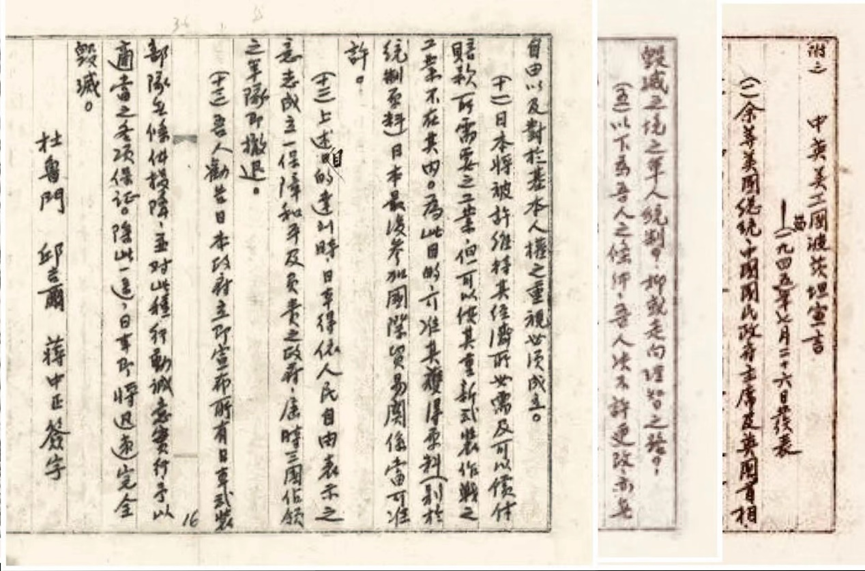 附二
中英美三國波茨坦宣言
(一九四五年七月二十六日發表)
(一)余等美國總統、中國國民政府主席及英國首相
毀滅之境之軍人統制?抑或走向理智之路?
(五)以下為吾人之條件,吾人決不許更改,亦無
自由以及對於基本人權之重視必須成立。
(十一)日本將被許維持其經濟所必需及可以償付
賠款所需要之工業,但可以使其重新武裝作戰之
工業不在其內。為此目的,亦准其獲得原料(別於
統制原料)日本最後參加國際貿易關係當可准
許。
(十二)上述目的達到時,日本得依人民自由表示之
意志成立一保障和平及負責之政府,屆時三國佔領
之軍隊即撤退。
(十三)吾人勸告日本政府立即宣布所有日軍武裝
部隊無條件投降,並對此種行動誠意實行予以
適當之各項保証。除此一途,日本即將迅速完全
毀滅。
杜魯門 邱吉爾 蔣中正簽字
16